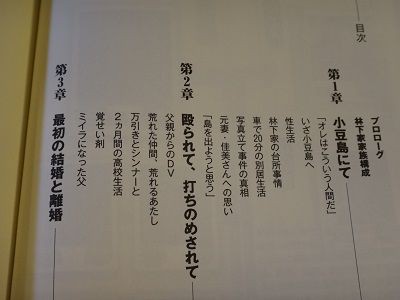 目次
プロローグ
林下家家族構成
第1章 小豆島にて
「オレはこういう人間だ」
いざ小豆島へ
性生活
林下家の台所事情
車で20分の別居生活
写真立て事件の真相
元妻・佳美さんへの思い
「島を出ようと思う」
第2章 殴られて、打ちのめされて
父親からのDV
荒れた仲間、荒れるあたし
万引きとシンナーと
2ヵ月間の高校生活
覚せい剤
ミイラになった父
第3章 最初の結婚と離婚